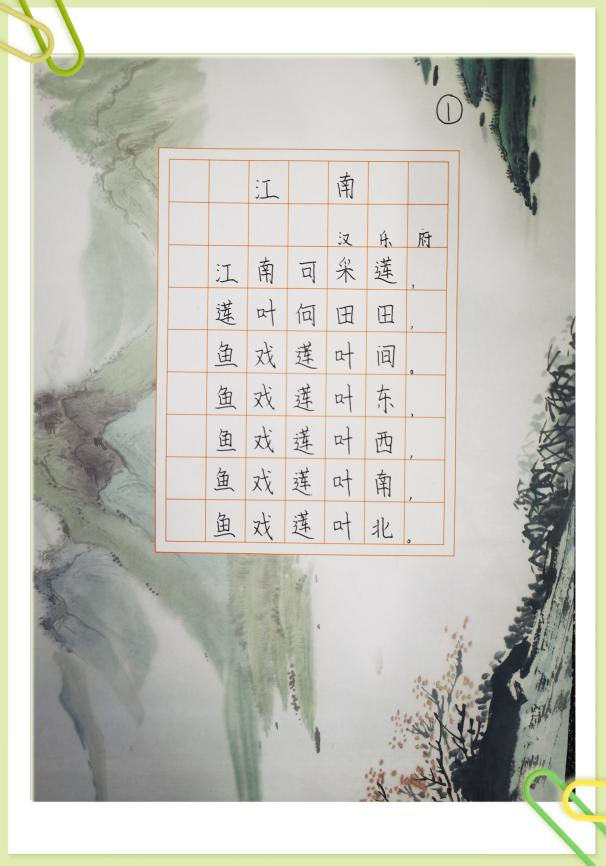 ①
江南
汉乐府
江南可采莲，
莲叶何田田，
鱼戏莲叶间。
鱼戏莲叶东，
鱼戏莲叶西，
鱼戏莲叶南，
鱼戏莲叶北。